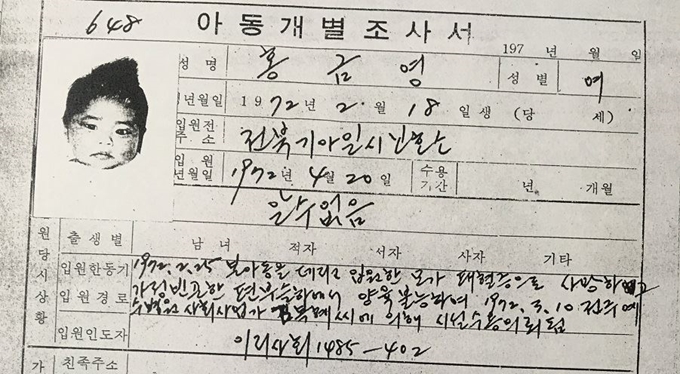 648
아동개별조사서
197 년 월 일
성 명 홍 금 영 성 별 여
년월일 1972년 2.월 18일생 (당 세)
입원전 주 소 전북기아일시보호소
입 원 년월일 1972년 4월 20일 수용기간 년 개월
알수없음
원당시상황 출생별 남 녀 적자 서자 사자 기타
입원한동기 1972.2.25 본아동을 데리고 입원한 모가 패혈증으로 사망하였고
입원경로 가정빈곤한 편부슬하에서 양육불능하며 1972.3.10 전주예
수병원 사회사업가 씨에 의해 시설수용의뢰됨
입원인도자 이리사회1485-402
가 친족주소